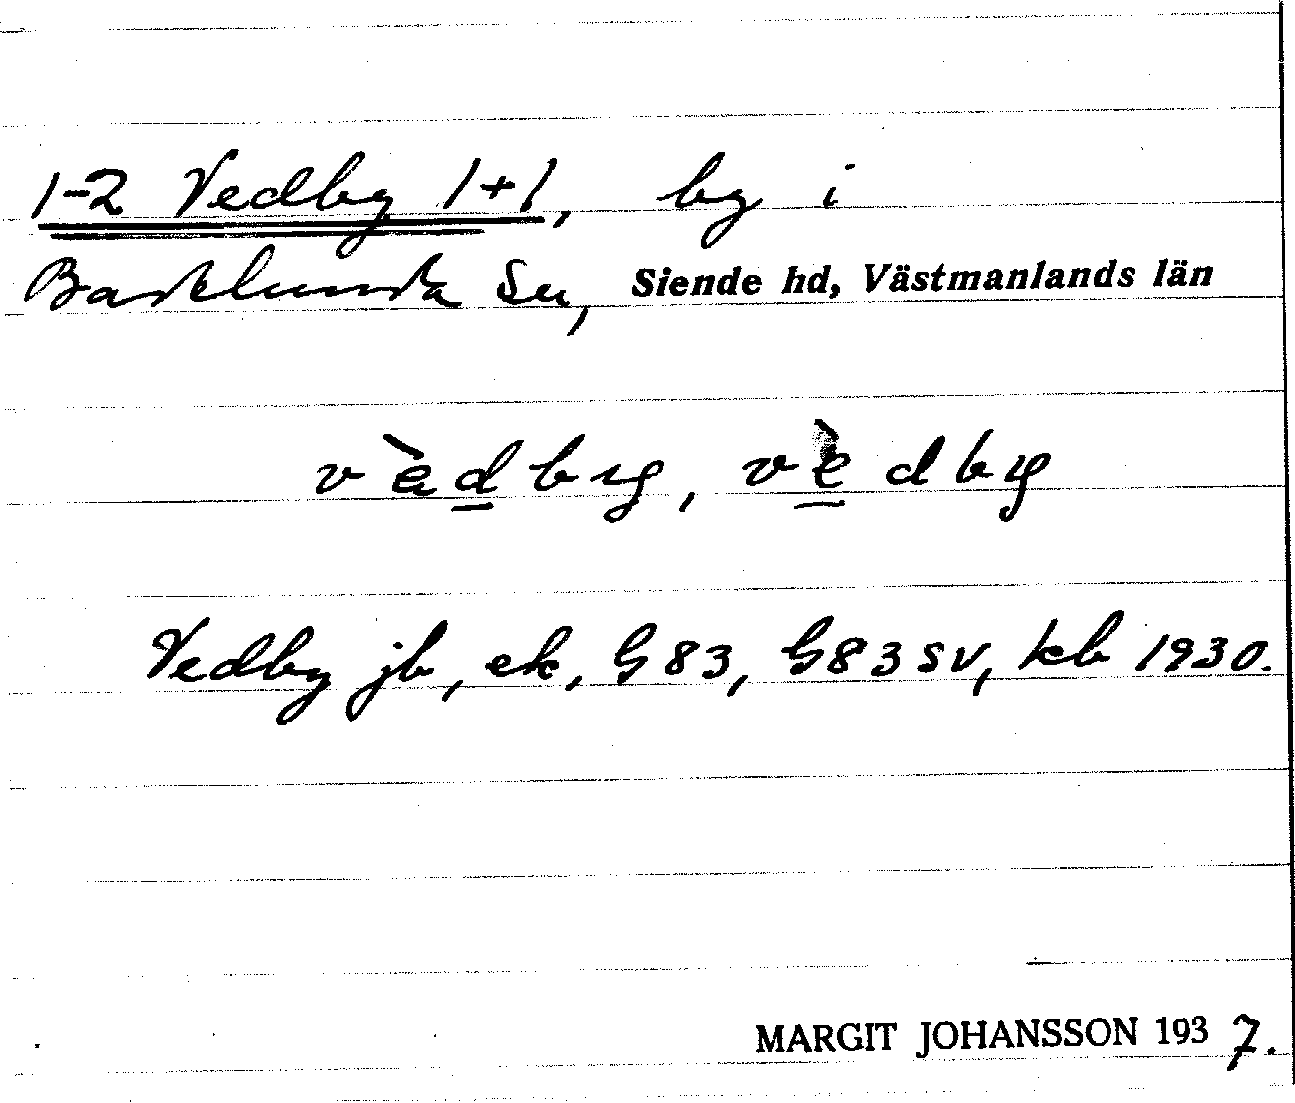 1-2 Vedby 1+1, by i
Badelunda Sn, Siende hd, Västmanlands län
vèdby, vèdby
Vedby jb, ek, G83, G83SV, kb 1930.
MARGIT JOHANSSON 1937.